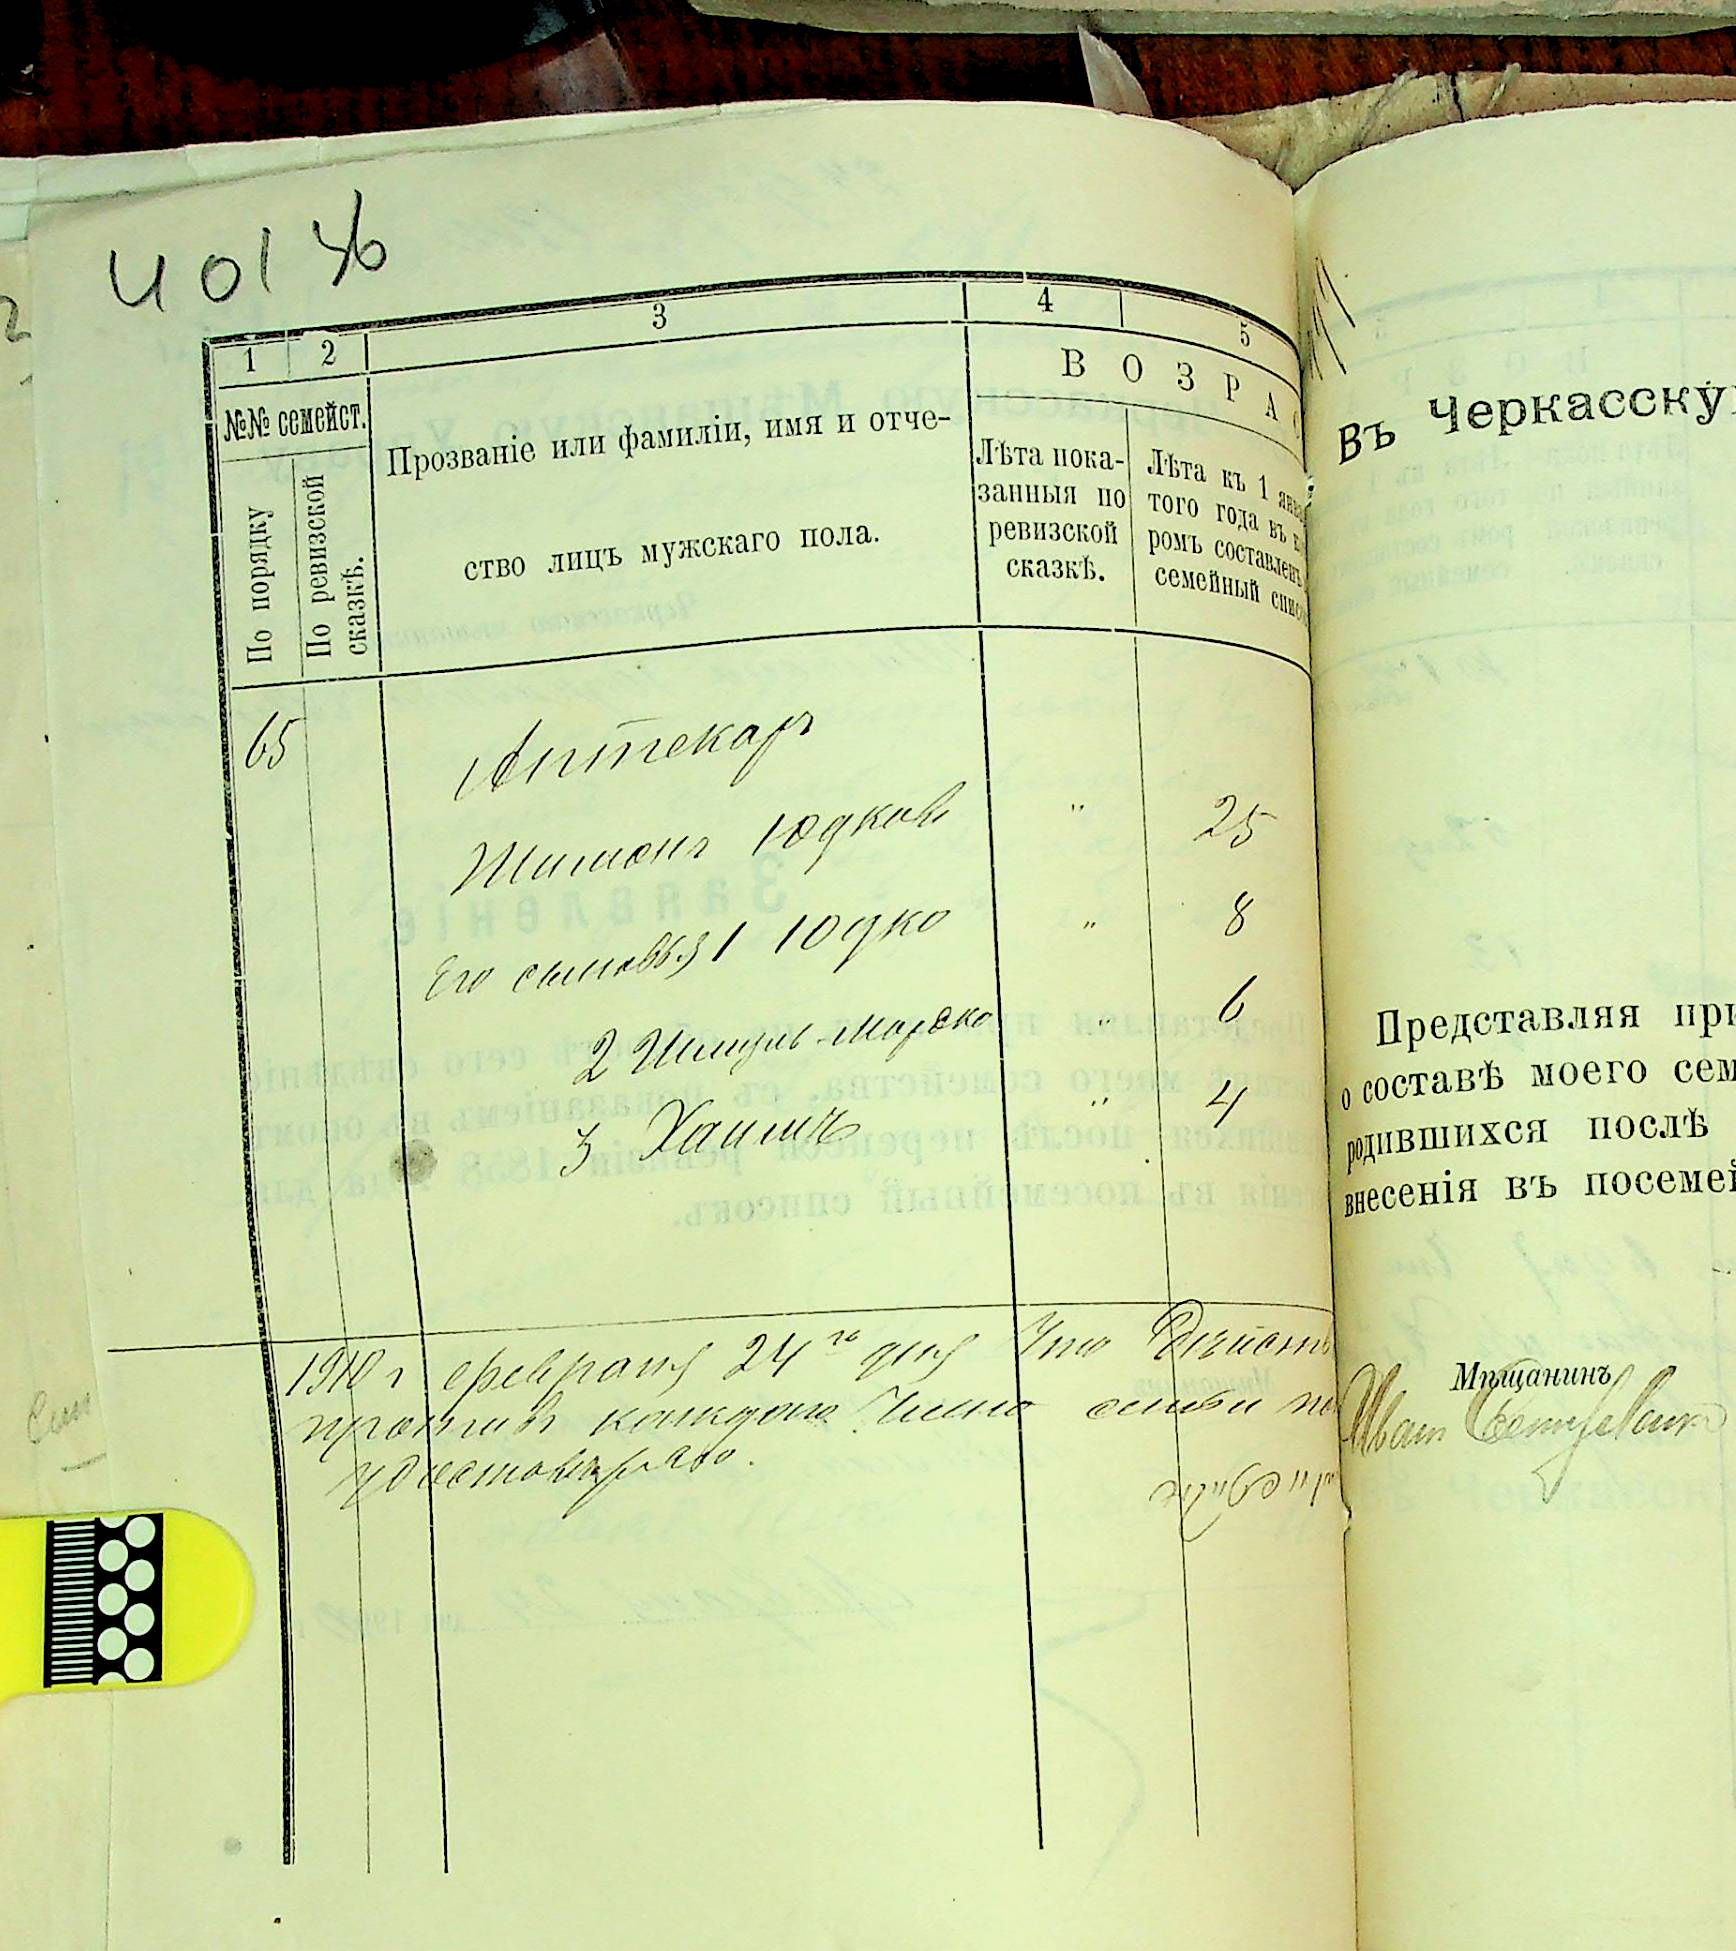 401 об
1 2 3 4 5
№№ семейст.
По порядку
По ревизской сказкѣ.
Прозваніе или фамиліи, имя и отче-
ство лицъ мужскаго пола.
ВОЗРАС
Лѣта пока-
занныя по
ревизской
сказкѣ.
Лѣта къ 1 янва
того года въ к
ромъ составленъ
семейный списо
65 Аптекарь
Шимонъ Юдковъ " 25
Его сыновья 1 Юдко " 8
2 Шмуль-Мордко " 6
3 Хаимъ " 4
1910 г февраля 24го дня Что
противъ сего числа семьи
удостовѣряю.
Въ Черкасску
Представляя при
о составѣ моего сем
родившихся послѣ
внесенія въ посемей
Мѣщанинъ
Иванъ